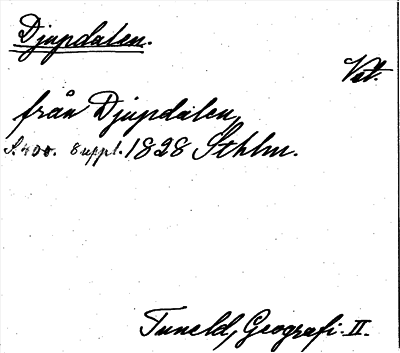 Djupdalen.
Vät.
från Djupdalen,
S. 400. suppl. 1828 Sthlm.
Tuneld, Geografi. II.